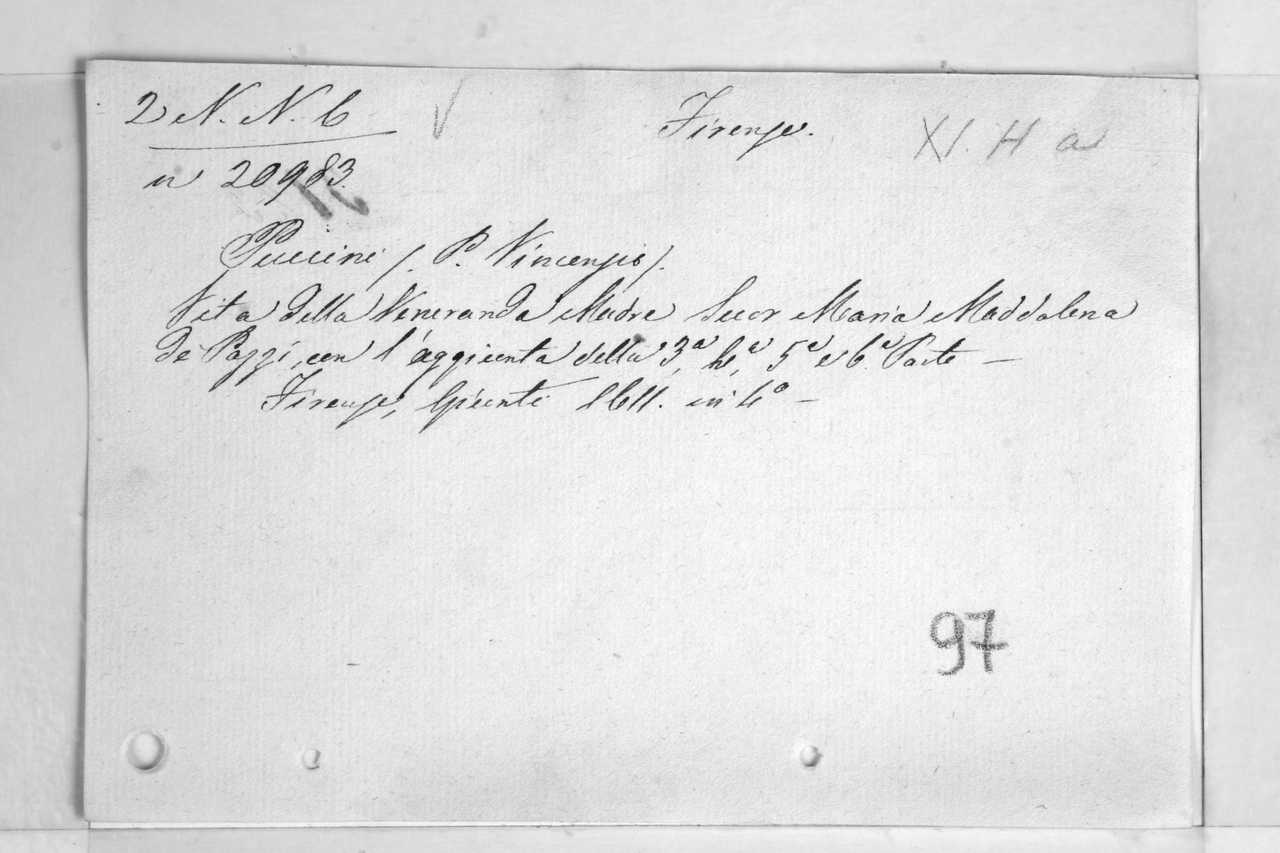 2 N. N. 6 Firenze. XI. H a
n 20983.
Puccini (P. Vincenzio).
Vita della Veneranda Madre Suor Maria Maddalena
de' Pazzi, con l'aggiunta della 3ª, 4ª, 5ª e 6ª Parte —
Firenze, Giunti 1611. in 4° —
97